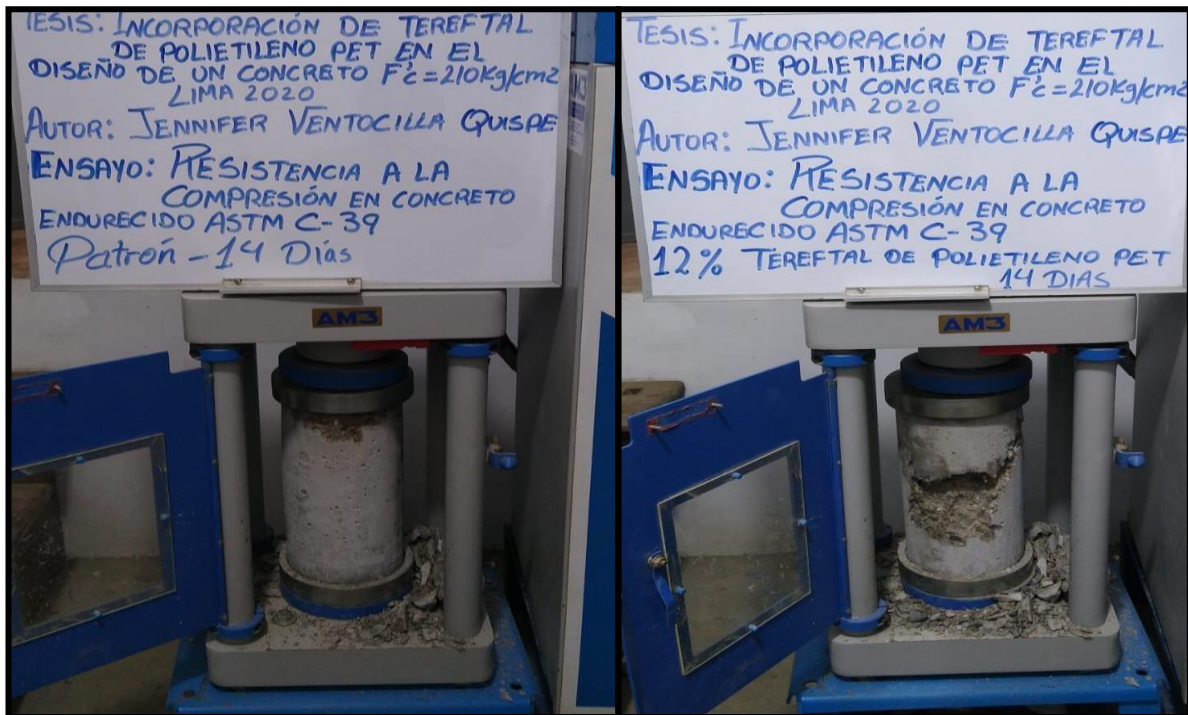 TESIS: INCORPORACIÓN DE TEREFTAL
DE POLIETILENO PET EN EL
DISEÑO DE UN CONCRETO F'c=210Kg/cm2
LIMA 2020
AUTOR: JENNIFER VENTOCILLA QUISPE
ENSAYO: RESISTENCIA A LA
COMPRESIÓN EN CONCRETO
ENDURECIDO ASTM C-39
Patrón - 14 Días
AM3
TESIS: INCORPORACIÓN DE TEREFTAL
DE POLIETILENO PET EN EL
DISEÑO DE UN CONCRETO F'c=210Kg/cm2
LIMA 2020
AUTOR: JENNIFER VENTOCILLA QUISPE
ENSAYO: RESISTENCIA A LA
COMPRESIÓN EN CONCRETO
ENDURECIDO ASTM C-39
12% TEREFTAL DE POLIETILENO PET
14 DIAS
AM3